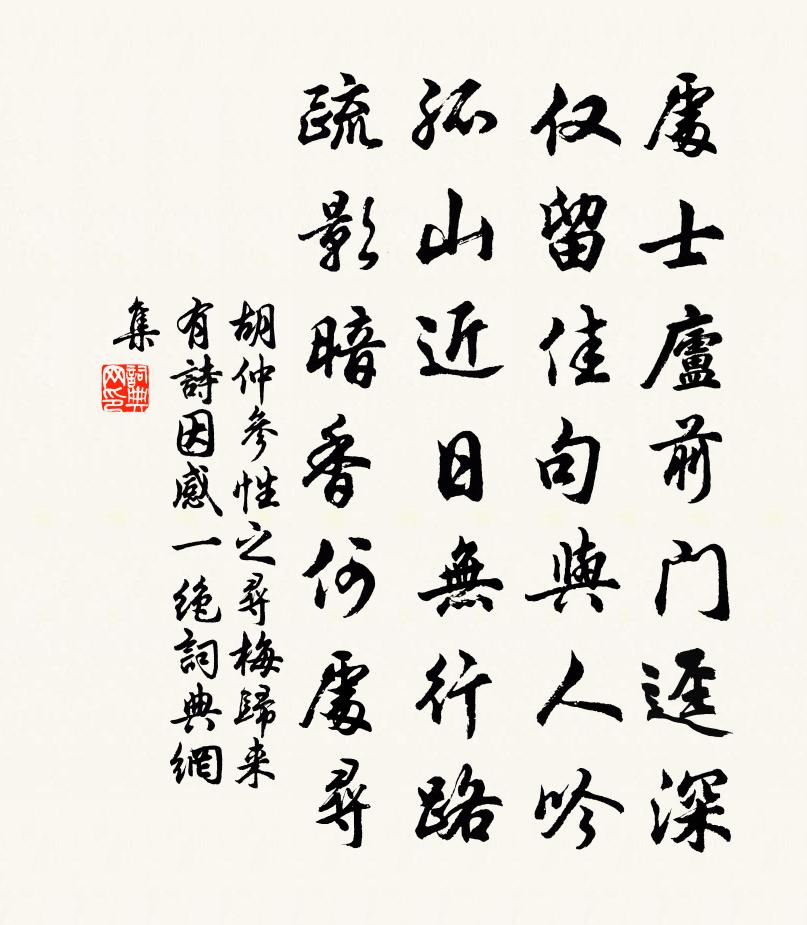 處士廬前門逕深
仅留佳句與人吟
孤山近日無行路
疏影暗香何處尋
胡仲參性之尋梅歸来
有詩因感一絶詞典網
集
詞典网印